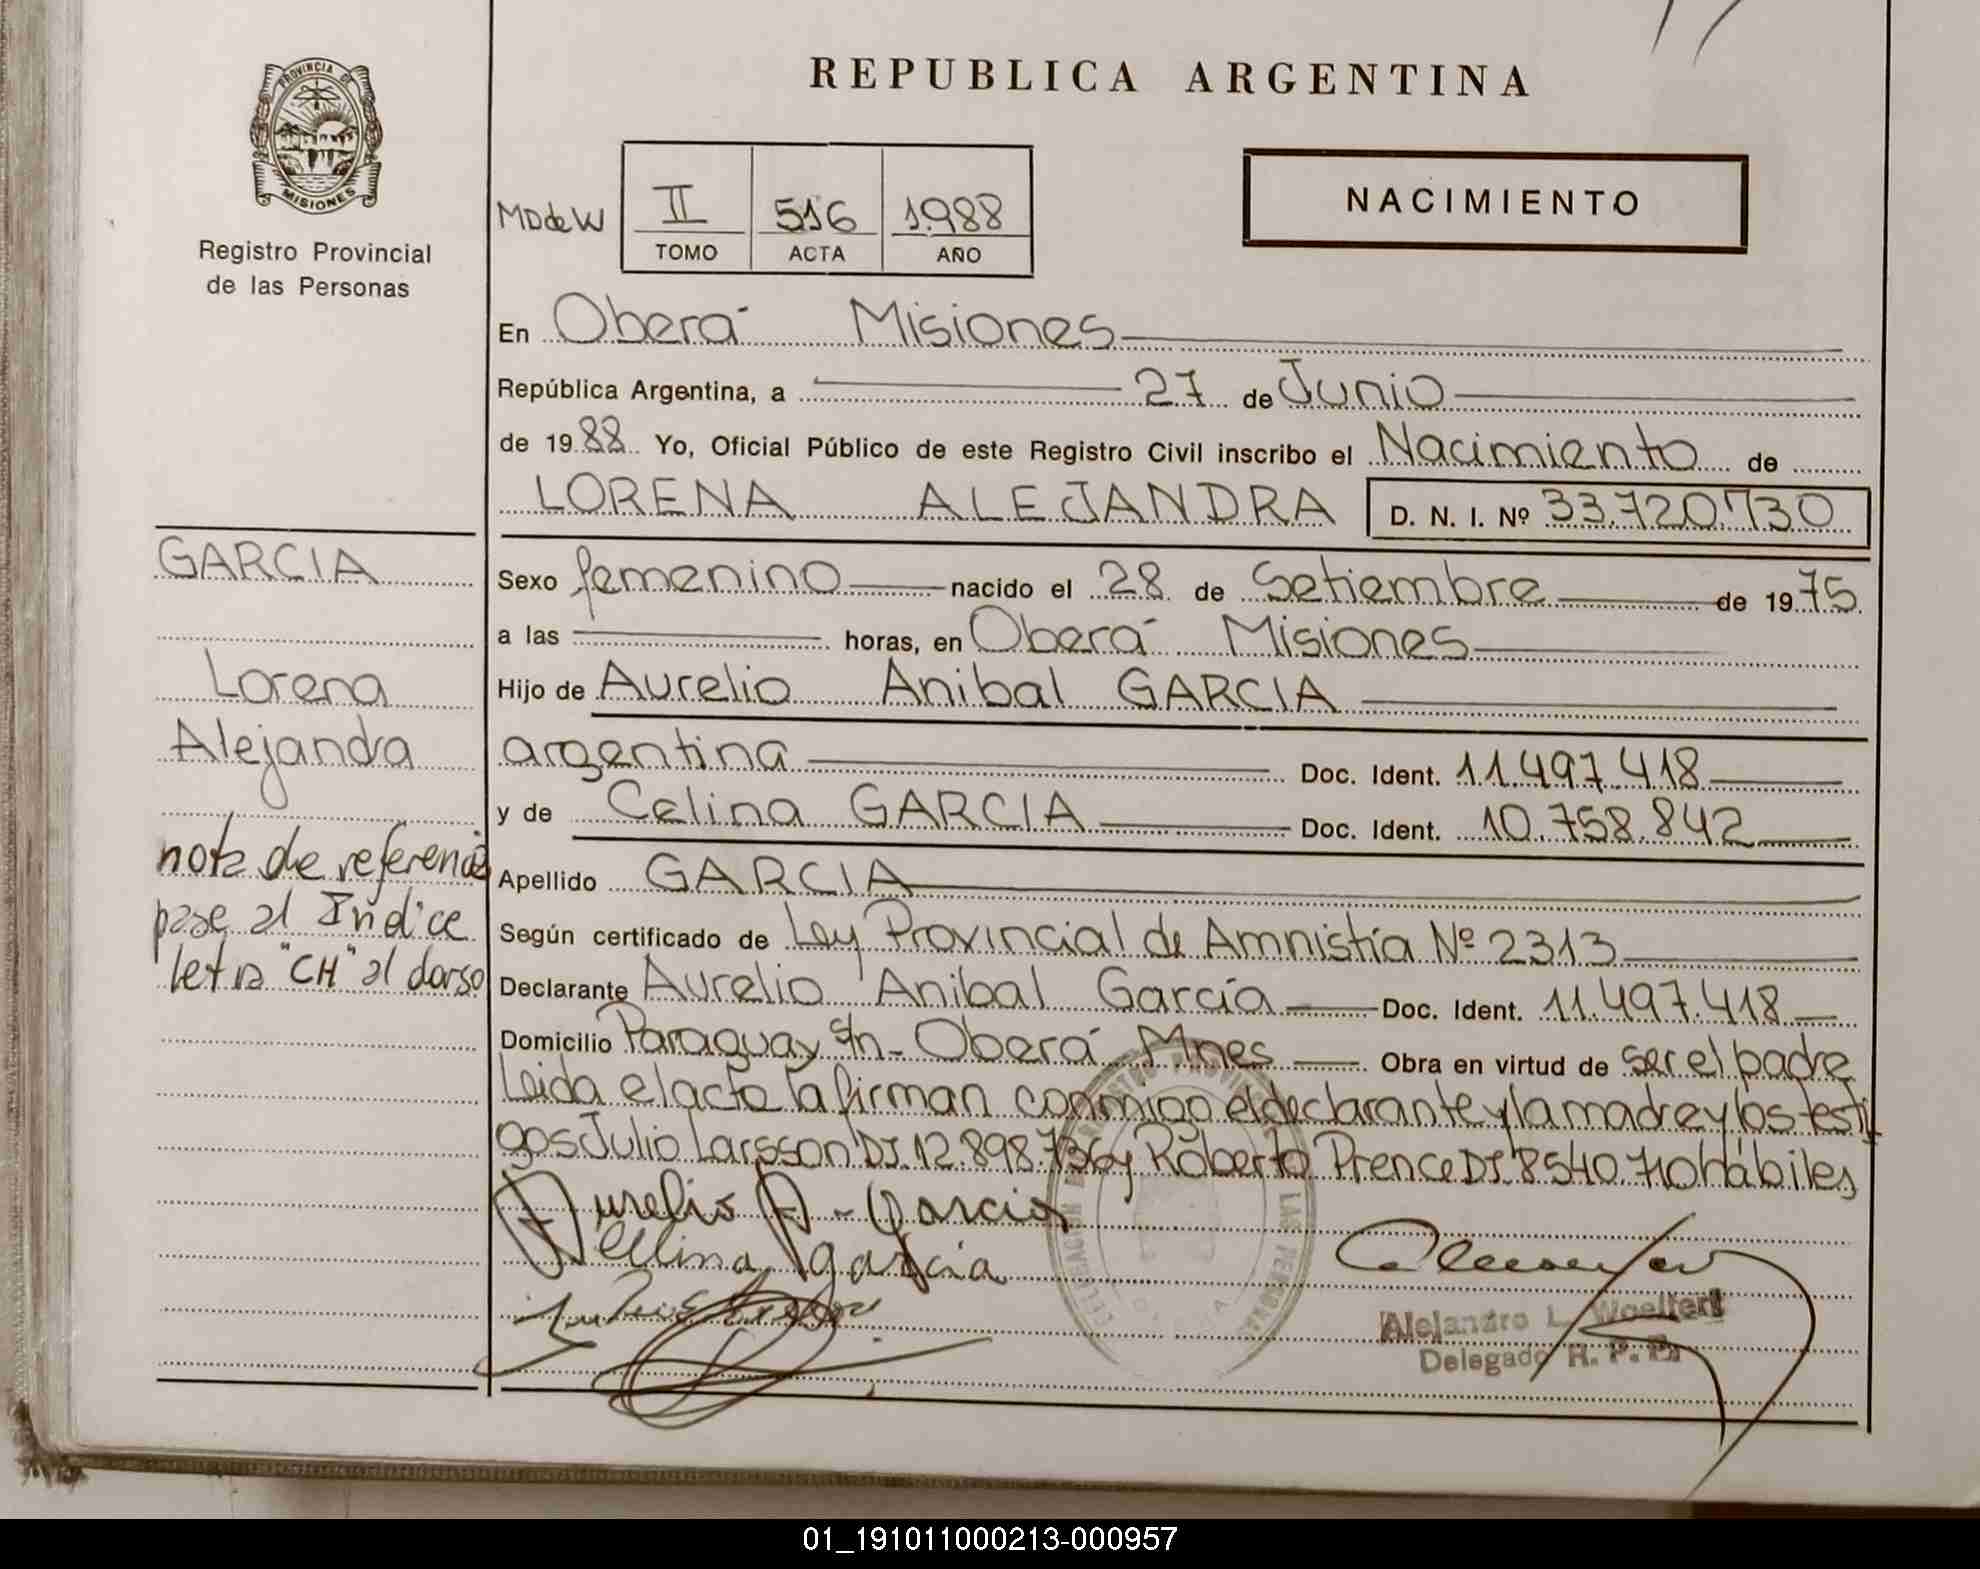 REPUBLICA ARGENTINA
PROVINCIA DE
MISIONES
Registro Provincial
de las Personas
MDdeW
II 516 1.988
TOMO ACTA AÑO
NACIMIENTO
En Oberá Misiones
República Argentina, a 27 de Junio
de 1988 Yo, Oficial Público de este Registro Civil inscribo el Nacimiento de
LORENA ALEJANDRA D. N. I. Nº 33.720.730
GARCIA
Lorena
Alejandra
nota de referencia
pase al Indice
letra "CH" al dorso
Sexo femenino nacido el 28 de Setiembre de 1975
a las horas, en Oberá Misiones
Hijo de Aurelio Anibal GARCIA
argentina Doc. Ident. 11.497.418
y de Celina GARCIA Doc. Ident. 10.758.842
Apellido GARCIA
Según certificado de Ley Provincial de Amnistía Nº 2313
Declarante Aurelio Anibal García Doc. Ident. 11.497.418
Domicilio Paraguay s/n - Oberá Mnes Obra en virtud de ser el padre
Leida el acta la firman conmigo el declarante y la madre y los testi
gos Julio Larsson DI. 12.898.736 y Roberto Prence DI. 8540.710 hábiles
Aurelio A. Garcia
Celina garcia
LAS PERSONAS
Alejandro L. Woelfert
Delegado R. P. P.
01_191011000213-000957